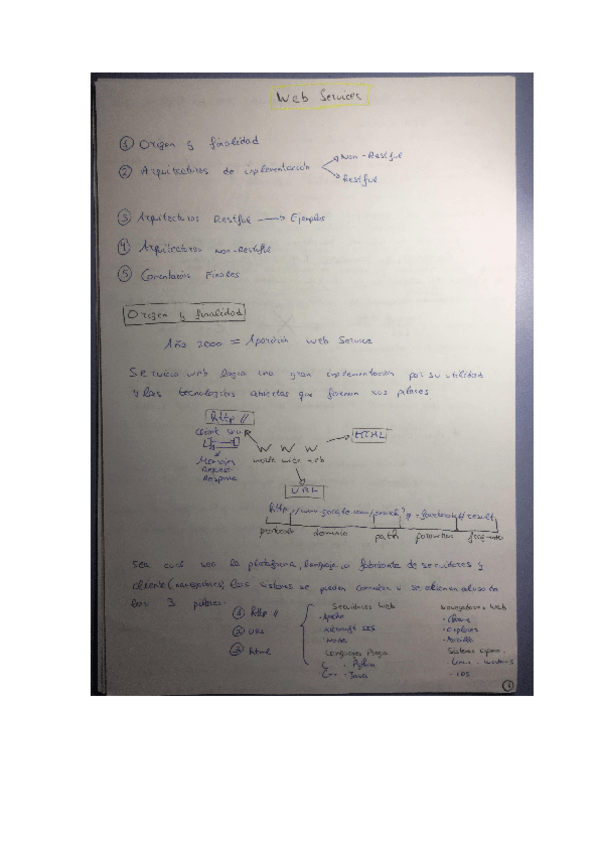 Web Services
① Origen y finalidad
② Arquitecturas de implementación
Non-Restful
Restful
③ Arquitecturas Restful → Ejemplos
④ Arquitecturas non-Restful
⑤ Comentarios Finales
Origen y finalidad
Año 2000 = Aparición Web Service
Servicio web logra una gran implementación por su utilidad
y las tecnologías abiertas que forman sus pilares
http //
HTML
W W W
world wide web
Request
Response
URL
http://www.google.com/search?q=facebook#result
protocolo dominio path
Sea cual sea la plataforma, lenguaje o fabricante de servidores y
cliente (navegadores) los sistemas se pueden
los 3 pilares:
① http //
② URL
③ html
Servidores Web
· Apache
· Microsoft IIS
Lenguajes
C · Python
C++ · Java
Navegadores Web
· Chrome
· Explorer
· Mozilla
Sistemas
· Linux · windows
· iOS
1